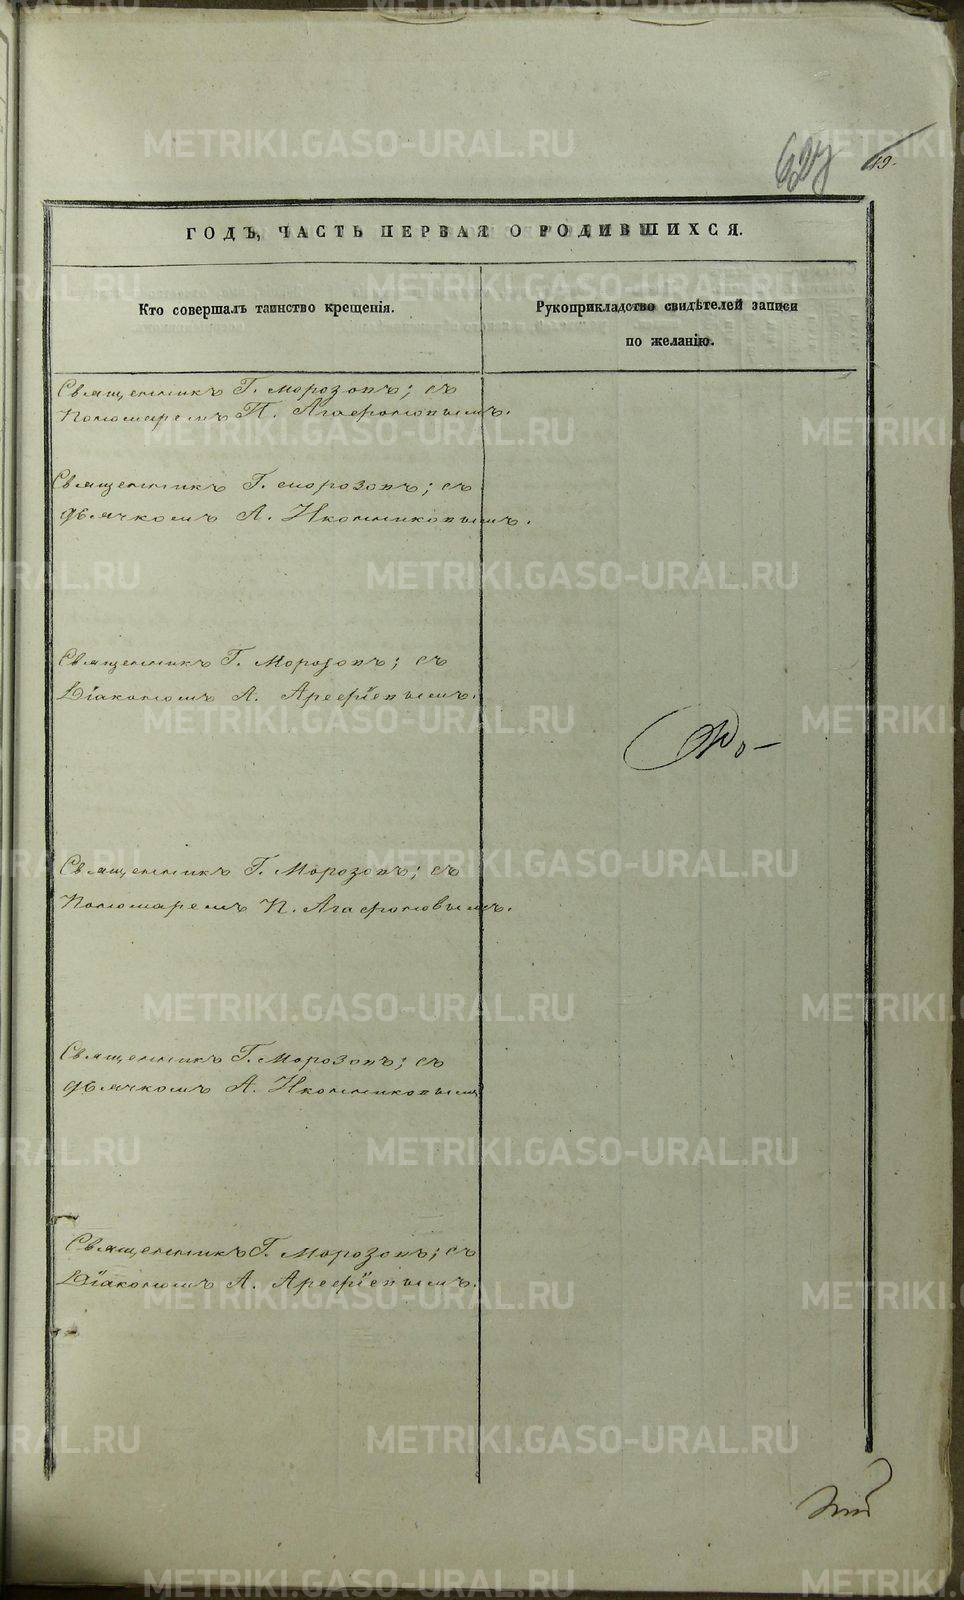 627
49.
ГОДЪ, ЧАСТЬ ПЕРВАЯ О РОДИВШИХСЯ.
Кто совершалъ таинство крещенія.
Рукоприкладство свидѣтелей записи
по желанію.
Священникъ Г. Морозовъ; съ
Пономаремъ П. Агафоновымъ.
Священникъ Г. Морозовъ; съ
дьячкомъ А. Иконниковымъ.
Священникъ Г. Морозовъ; съ
Діакономъ А. Арефіевымъ.
Священникъ Г. Морозовъ; съ
Пономаремъ П. Агафоновымъ.
Священникъ Г. Морозовъ; съ
дьячкомъ А. Иконниковымъ
Священникъ Г. Морозовъ; съ
Діакономъ А. Арефіевымъ.
METRIKI.GASO-URAL.RU